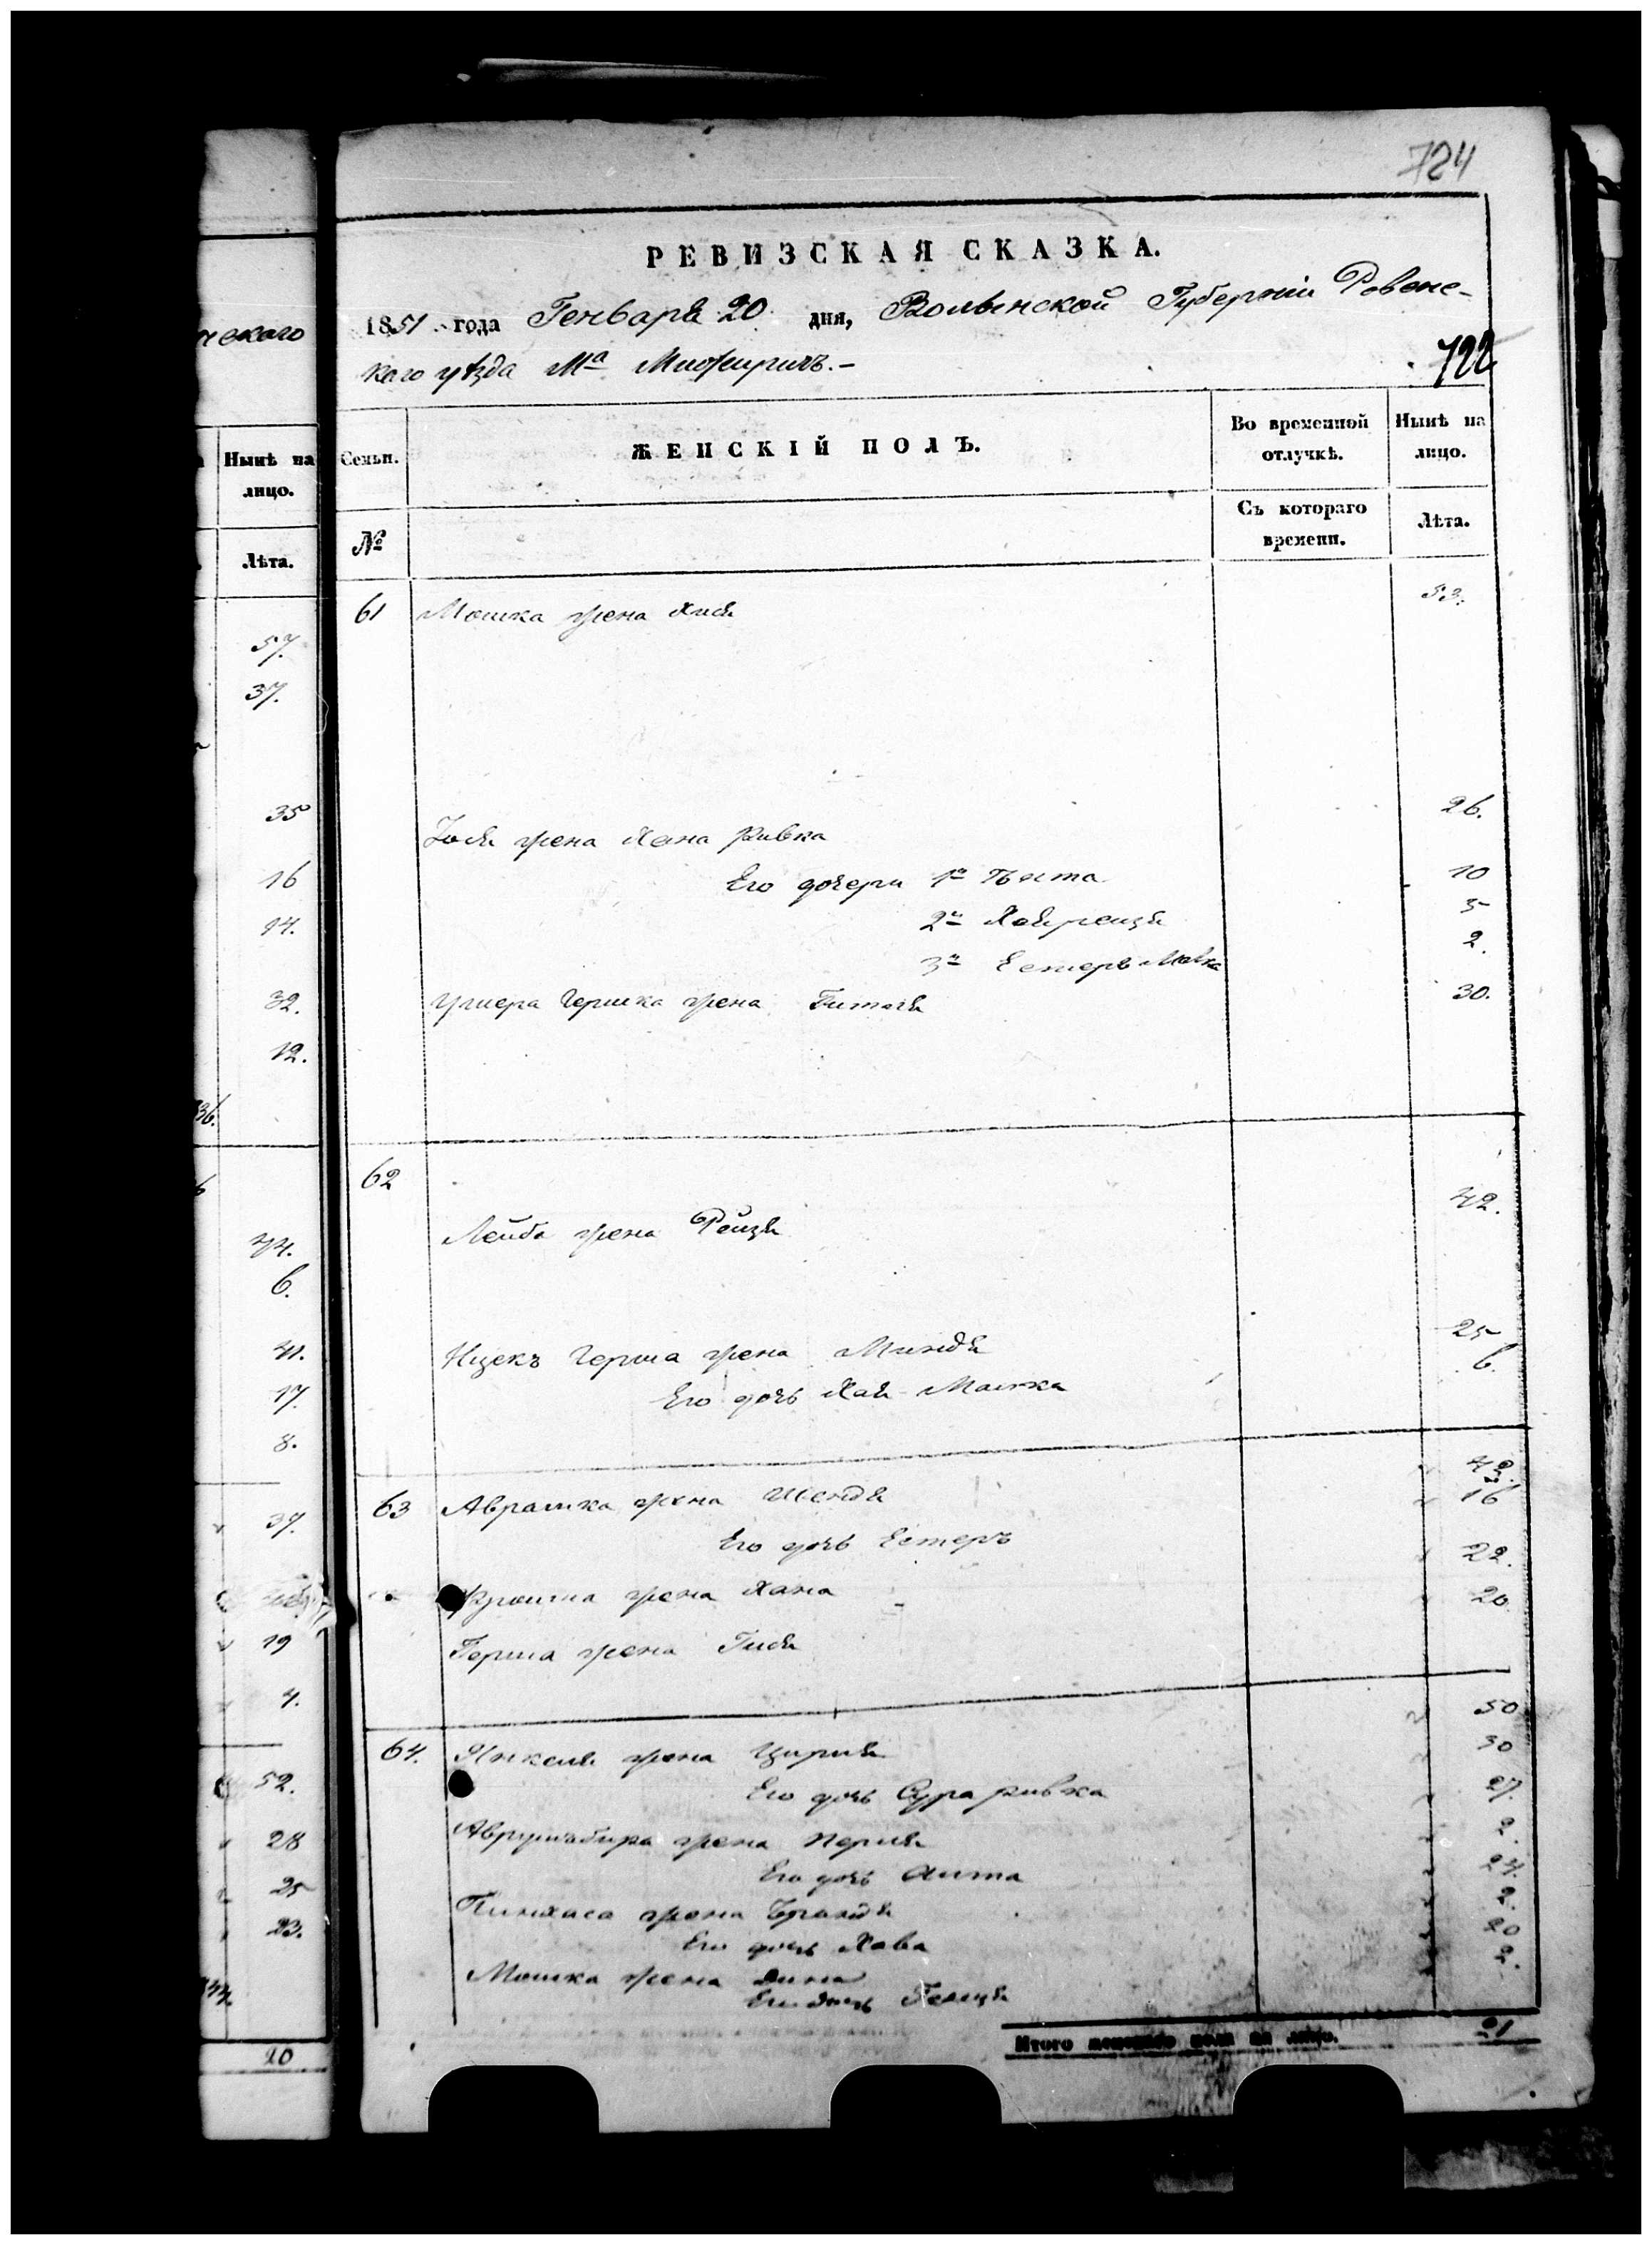 724
РЕВИЗСКАЯ СКАЗКА.
1851 года Генваря 20 дня, Волынской Губерніи Ровенс-
каго уѣзда Мᵃ Межиричъ.-
722
Семьи.
ЖЕНСКІЙ ПОЛЪ.
Во временной отлучкѣ.
Нынѣ на лицо.
№
Съ котораго времени.
Лѣта.
61 Мошка жена Хися 53.
Іося жена Хана Ривка 26.
Его дочери 1ᵃ 10
2ᵃ Хая рейзя 5
3ᵃ Естеръ Малка 2.
Гершка жена Гитля 30.
62
Лейба жена Рейзя 42.
Ицекъ Герша жена Миндя 25
Его дочь Хая-Малка 6.
63 Аврамка жена Шендя 42.
Его дочь Естеръ 16
жена Хана 22.
Герша жена Гися 20
64. Янкеля жена Ципря 50
Его дочь Сура ривка 30
жена Перля 27.
Его дочь 2.
Пинхаса жена Брандя 24.
Его дочь Хава 2.
Мошка жена Дина 20
Его дочь 2.
Итого женскаго пола на лицо. 21
ческаго
Нынѣ на лицо.
Лѣта.
57.
37.
35
16
14.
32.
12.
36.
44.
6.
41.
17.
8.
37.
19
4.
52.
28
25
23.
20